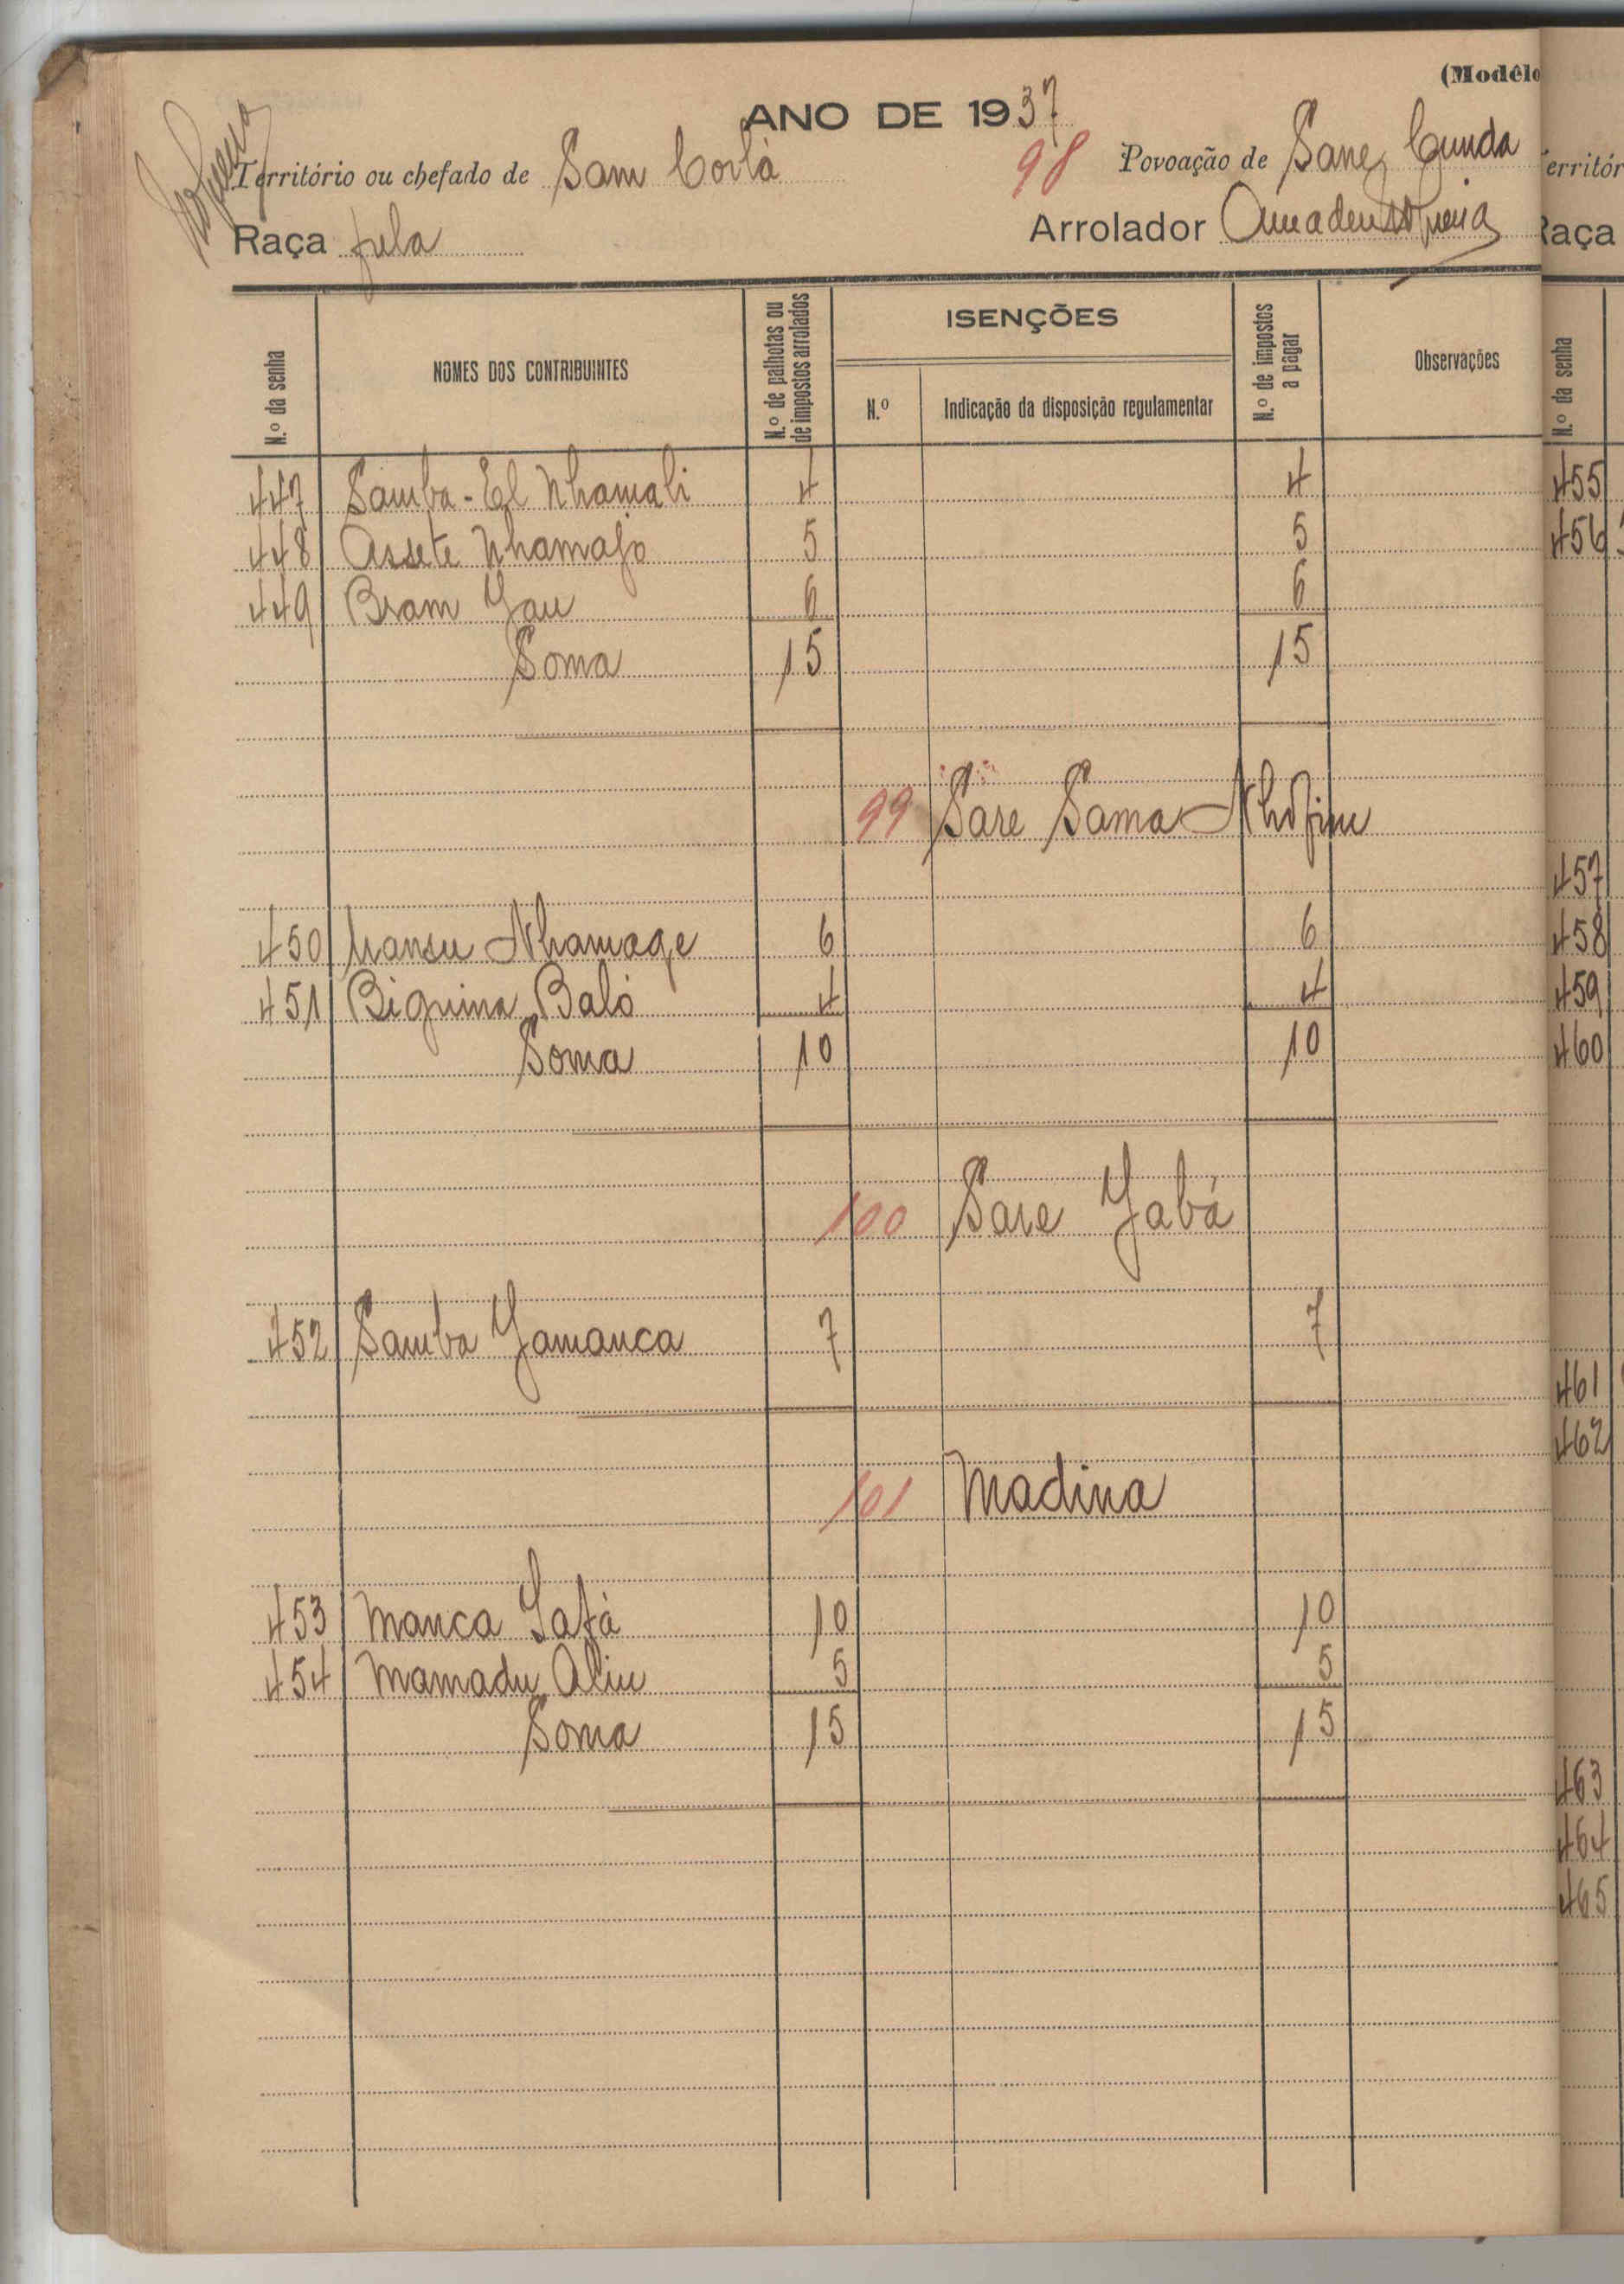 (Modêlo
ANO DE 1937
Território ou chefado de Sam Corlà 98 Povoação de Sane Cunda
Raça fula Arrolador Amadeu Nogueira
N.º da senha NOMES DOS CONTRIBUINTES N.º de palhotas ou de impostos arrolados ISENÇÕES N.º de impostos a pagar Observações
N.º Indicação da disposição regulamentar
447 Samba-El Nhamali 4 4
448 Assete Nhamajo 5 5
449 Bram Jau 6 6
Soma 15 15
99 Sare Sama
450 Mansu Nhamage 6 6
451 Biquina Baló 4 4
Soma 10 10
100 Sare Yabá
452 Samba Jamanca 7 7
101 Madina
453 Manca Satà 10 10
454 Mamadu Aliu 5 5
Soma 15 15
erritór
Raça
N.º da senha
455
456
457
458
459
460
461
462
463
464
465